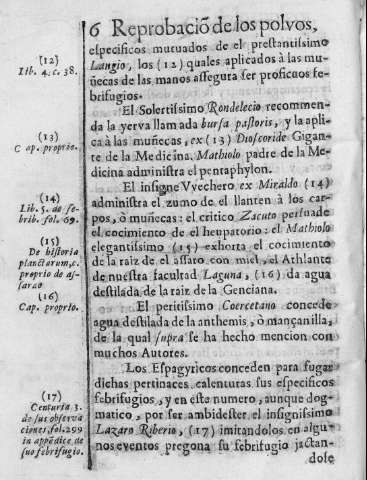 6 Reprobaciõ de los polvos,
eſpecificos mutuados de el preſtantiſsimo
Langio, los (12) quales aplicados à las mu-
ñecas de las manos aſſegura ſer proficuos fe-
brifugios.
El Solertiſsimo Rondelecio recomen-
da la yerva llamada burſa paſtoris, y la apli-
ca à las muñecas, ex (13) Dioſcoride Gigan-
te de la Medicina. Mathiolo padre de la Me-
dicina adminiſtra el pentaphylon.
El inſigne Vyechero ex Miraldo (14)
adminiſtra el zumo de el llanten à los car-
pos, ò muñecas: el critico Zacuto perſuade
el cocimiento de el heupatorio: el Mathiolo
elegantiſsimo (15) exhorta el cocimiento
de la raiz de el aſſaro con miel, el Athlante
de nueſtra facultad Laguna, (16) da agua
deſtilada de la raiz de la Genciana.
El peritiſsimo Coercetano concede
agua deſtilada de la anthemis, ò mançanilla,
de la qual ſupra ſe ha hecho mencion con
muchos Autores.
Los Eſpagyricos conceden para fugar
dichas pertinaces calenturas ſus eſpecificos
febrifugios, y en eſte numero, aunque dog-
matico, por ſer ambidexter el inſigniſsimo
Lazaro Riberio, (17) imitandolos en algu-
nos eventos pregona ſu febrifugio jactan-
doſe
(12)
Lib. 4. c. 38.
(13)
Cap. proprio.
(14)
Lib. 5. de fe-
brib. fol. 69.
(15)
De hiſtoria
plantarum, c.
proprio de aſ-
ſaro
(16)
Cap. proprio.
(17)
Centuria 3.
de ſus obſerva
ciones, fol. 299
in appẽdice de
ſuo febrifugio.